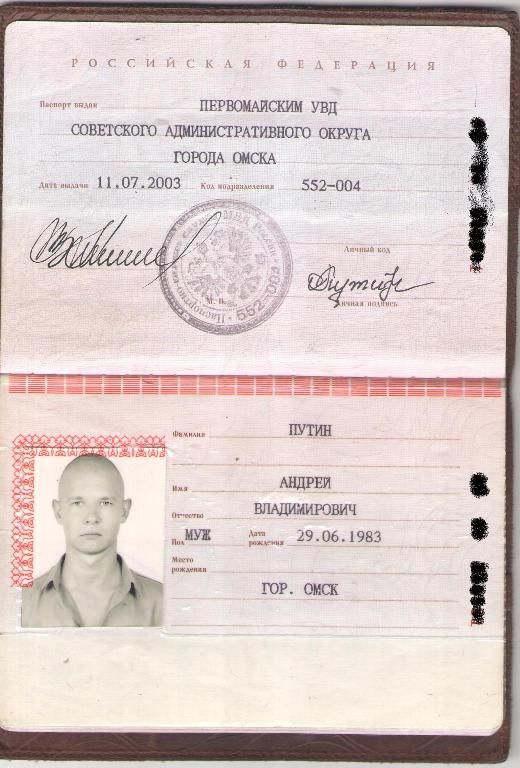 РОССИЙСКАЯ ФЕДЕРАЦИЯ
Паспорт выдан ПЕРВОМАЙСКИМ УВД
СОВЕТСКОГО АДМИНИСТРАТИВНОГО ОКРУГА
ГОРОДА ОМСКА
Дата выдачи 11.07.2003 Код подразделения 552-004
Личный код
М. П.
552-004
Личная подпись
Фамилия ПУТИН
Имя АНДРЕЙ
Отчество ВЛАДИМИРОВИЧ
Пол МУЖ Дата рождения 29.06.1983
Место рождения
ГОР. ОМСК